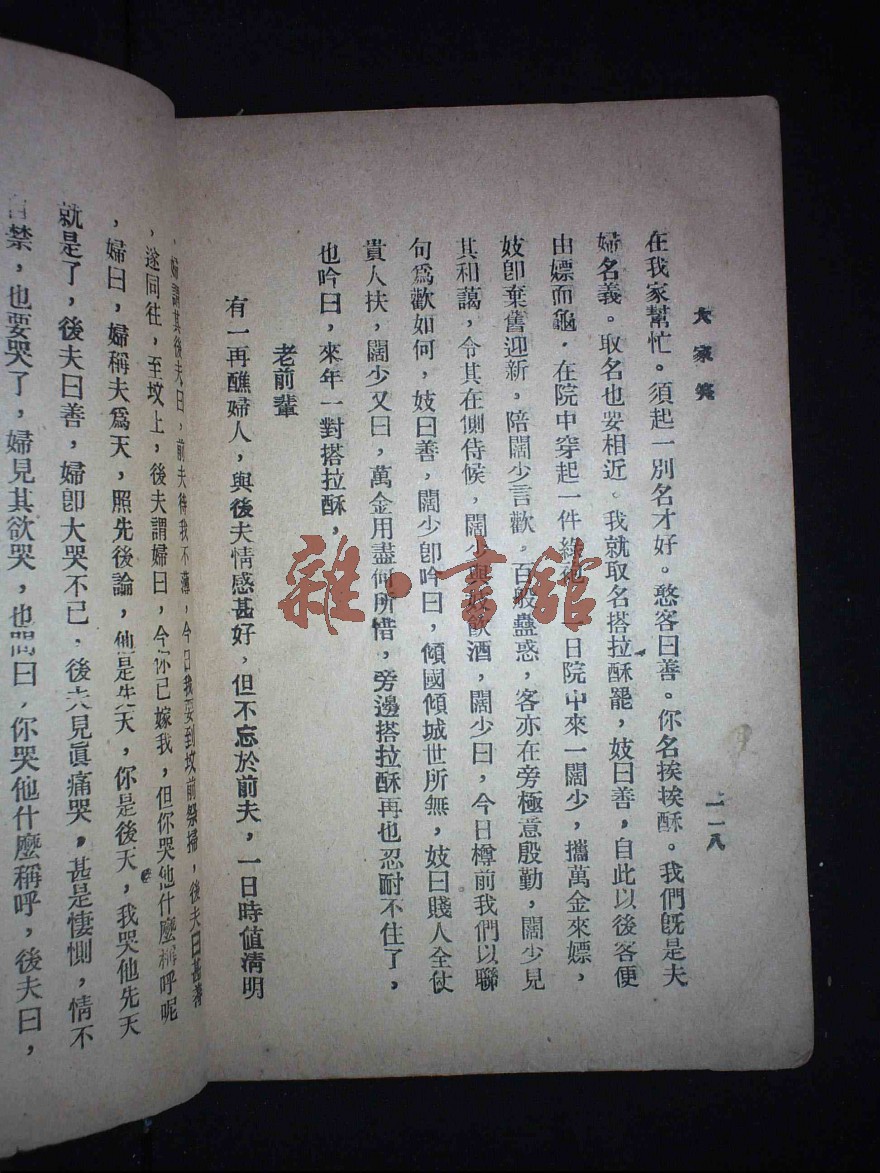 大家笑
二一八
在我家幫忙。須起一別名才好。憨客曰善。你名挨挨酥。我們既是夫
婦名義。取名也要相近。我就取名搭拉酥罷，妓曰善，自此以後客便
由嫖而龜，在院中穿起一件綠袍，一日院中來一闊少，攜萬金來嫖，
妓卽棄舊迎新，陪闊少言歡，百般蠱惑，客亦在旁極意殷勤，闊少見
其和藹，令其在側侍候，闊少與妓飲酒，闊少曰，今日樽前我們以聯
句爲歡如何，妓曰善，闊少卽吟曰，傾國傾城世所無，妓曰賤人全仗
貴人扶，闊少又曰，萬金用盡何所惜，旁邊搭拉酥再也忍耐不住了，
也吟曰，來年一對搭拉酥，
老前輩
有一再醮婦人，與後夫情感甚好，但不忘於前夫，一日時值清明
，婦謂其後夫曰，前夫待我不薄，今日我要到坟前祭掃，後夫曰甚善
，遂同往，至坟上，後夫謂婦曰，今你已嫁我，但你哭他什麼稱呼呢
，婦曰，婦稱夫爲天，照先後論，他是先天，你是後天，我哭他先天
就是了，後夫曰善，婦卽大哥不已，後夫見眞痛哭，甚是悽惻，情不
自禁，也要哭了，婦見其欲哭，也問曰，你哭他什麼稱呼，後夫曰，
雜·書館